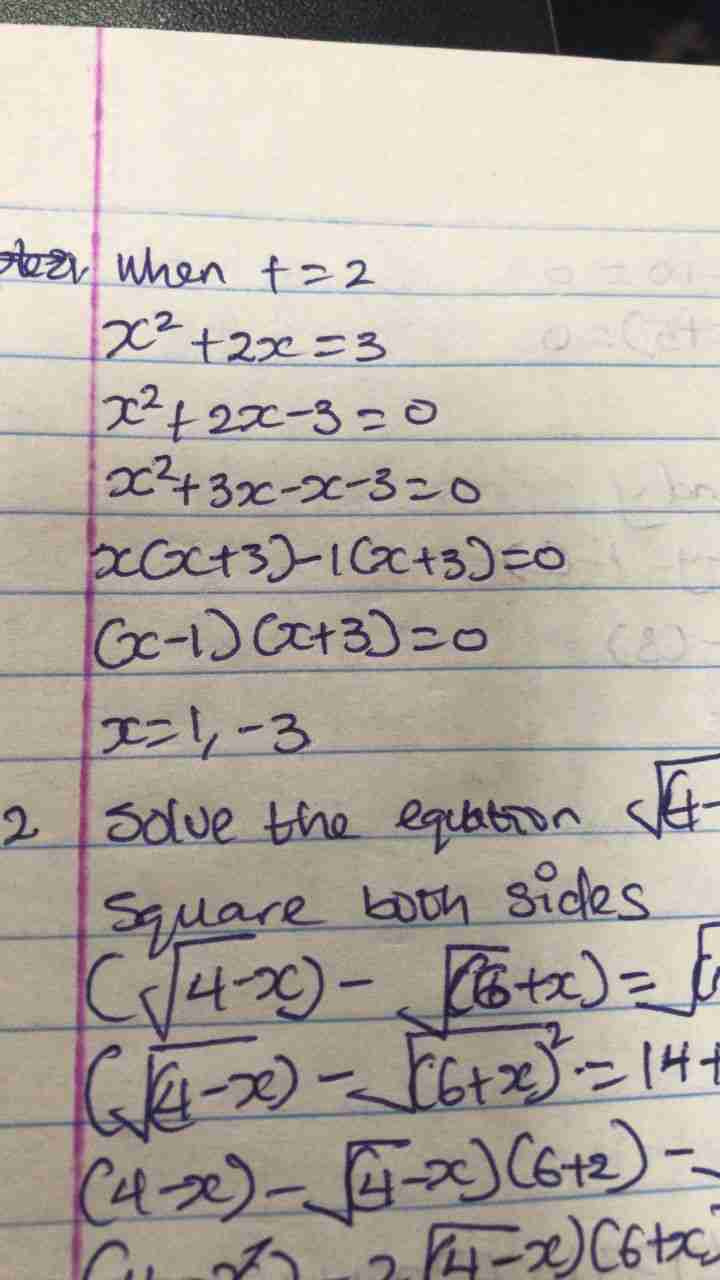 when t=2
x²+2x=3
x²+2x-3=0
x²+3x-x-3=0
x(x+3)-1(x+3)=0
(x-1)(x+3)=0
x=1,-3
2 Solve the equation √(4-
Square both sides
(√4-x)-√(6+x)=√(
(√(4-x)-√(6+x)²=14+
(4-x)-√(4-x)(6+2)-
-2√(4-x)(6+x)